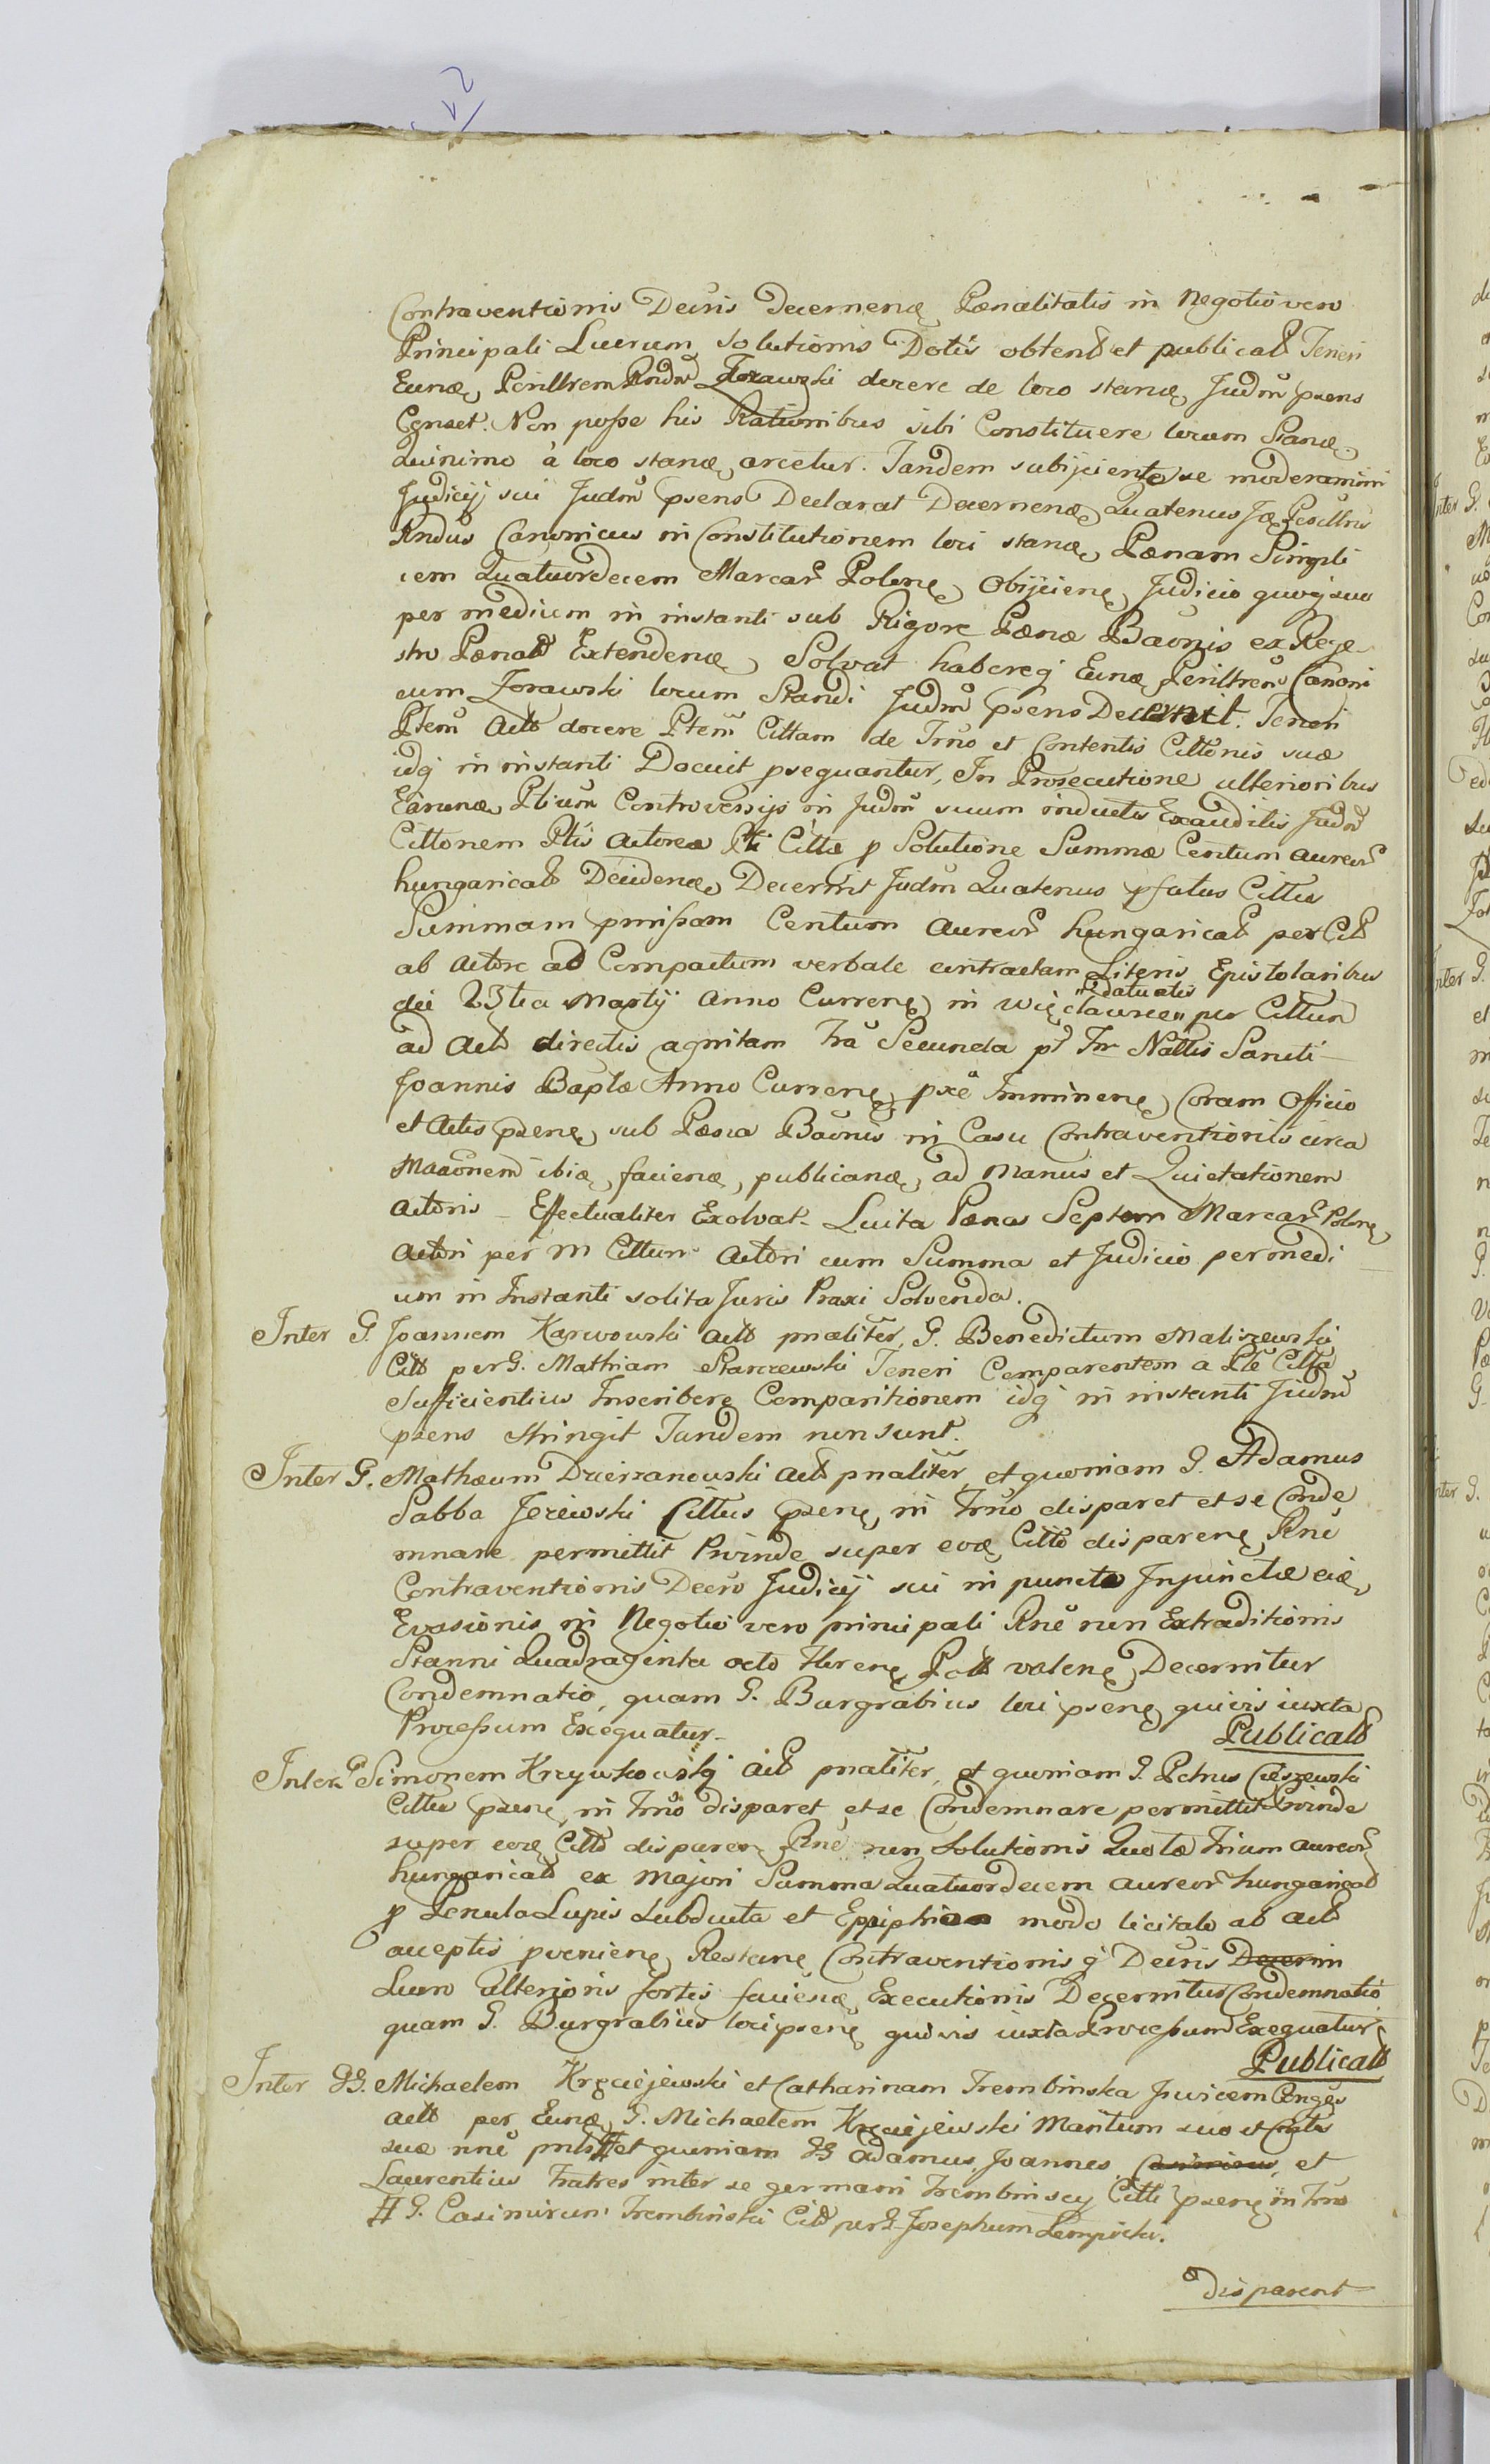 Contraventionis Decris Decernenæ Pænalitatis in Negotio vero
Principali Lucrum solutionis Dotis obtent et publicat Teneri
Eunæ, Perillrem Rndm Zorawski docere de loco standæ, Judm psens
Censet. Non posse his Rationibus sibi Constituere locum Stanæ,
Quinimo à loco stanæ, arcetur. Tandem subijciente se moderamini
Judicij sui Judm psens Declarat Decernenæ, Quatenus Jæ Perillris
Rndus Canonicus in Constitutionem loci stanæ, Pænam Simpli
cem Quatuordecem Marcar Polonę, Obijcienę, Judicio quoqz suo
per medium in instanti sub Rigore Pænæ Baonis ex Rege
stro Pænali Extendenæ, Solvat habereqz Eunæ, Perillrem Canoni
cum Zorawski locum Standi Judm psens Decernit. Teneri
Ptem Actt docere Ptem Cittam de Trno et Contentis Cittonis suæ
idqz in instanti Docuit psequantur, In Prosecutione ulterioribus
Earunæ, Ptium Controversijs in Judm suum inductis Exauditis Judm
Cittonem Ptis Actoreæ Pti Cittæ p Solutione Summæ Centum aureor
hungaricat Decidenæ, Decernit Judm Quatenus pfatus Cittus
Summam pmissam Centum Aureor hungarical per Citt
ab Actore ad Compactum verbale contractam Literis Epistolaribus
dei 23tia Martij Anno Currenę, in Więcławice datuatis per Cittum
ad Actt directis agnitam Tra Secunda pt Fm Nattis Sancti
Joannis Baptæ Anno Currenę, pxe Imminenę, Coram Officio
et Actis psenę, sub Pæna Baonis in Casu Contraventionis circa
Maaonem ibiæ, facienæ, publicanæ, ad Manus et Quietationem
Actoris Effectualiter Exolvat. Luita Pæna Septem Marcar Polonę,
Actori per m Cittum Actori cum Summa et Judicio per medi
um in Instanti solita Juris Praxi Solvenda.
Inter G. Joannem Karwowski Actt pnæliter, G. Benedictum Maliszewski
Citt per G. Mathiam Starczewski Teneri Comparentem a Pte Citta
Sufficientius Inscribere Comparitionem idqz in instanti Judm
psens Stringit Tandem non sunt.
Inter G. Mathæum Dzierzanowski Actt pnaliter, et quoniam G. Adamus
Sabba Jezewski Cittus psenę, in Trno disparet et se Conde
mnare permittit Proinde super eoæ, Citto disparenę, Rne
Contraventionis Decro Judicij sui in puncto Injunctæ eiæ,
Evasionis in Negotio vero principali Rne non Extraditionis
Stanni Quadraginta octo florenę, Poll valenę, Decernitur
Condemnatio, quam G. Burgrabius loci psenę, quivis iuxta
Processum Exequatur.
Publicatt
Inter G. Simonem Krzywkowski Actt pnaliter, et quoniam G. Petrus Cieszewski
Cittus psenę, in Trno disparet et se Condemnare permittit Proinde
super eoæ, Citto disparenę, Rne non Solutionis Quotæ Trium Aureor
hungarical ex Majori Summa Quatuordecem aureor hungarical
p Penula Lupis Subducta et Ephiphia modo licitato ab Actt
acceptis pvenienę, Restanę, Contraventionis qz Decris Decerni
Lucro Ulterioris fortis facienæ, Executionis Decernitur Condemnatio
quam G. Burgrabius loci psenę, quivis iuxta Processum Exequatur,
Publicatt
Inter GG. Michaelem Kręciejewski et Catharinam Trembinska Invicem Conges
Actt per Eunæ, G. Michaelem Kręciejewski Maritum suo et Conts
suæ nne pntes # et quoniam GG Adamus, Joannes, Casimirus, et
Laurentius Fratres inter se germani Trembinscy Citti psenę, in Trno
# G. Casimirum Trembinski Citt per G. Josephum Lempicki.
disparent